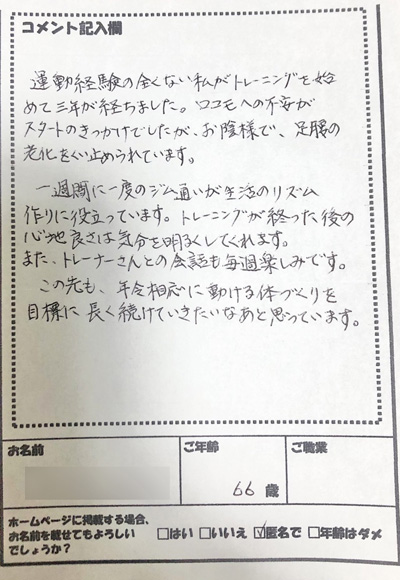 コメント記入欄
運動経験の全くない私がトレーニングを始
めて三年が経ちました。ロコモへの不安が
スタートのきっかけでしたが、お陰様で、足腰の
老化をくい止められています。
一週間に一度のジム通いが生活のリズム
作りに役立っています。トレーニングが終った後の
心地良さは気分を明るくしてくれます。
また、トレーナーさんとの会話も毎週楽しみです。
この先も、年令相応に動ける体づくりを
目標に長く続けていきたいなあと思っています。
お名前 ご年齢 ご職業
66歳
ホームページに掲載する場合、
お名前を載せてもよろしい
でしょうか？
□はい □いいえ ☑匿名で □年齢はダメ